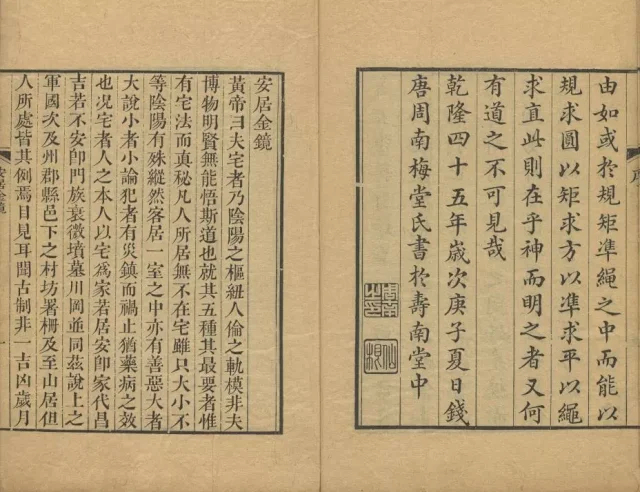 由如或於規矩準繩之中而能以
規求圓以矩求方以準求平以繩
求直此則在乎神而明之者又何
有道之不可見哉
乾隆四十五年歲次庚子夏日錢
唐周南梅堂氏書於壽南堂中
安居金鏡
黃帝曰夫宅者乃陰陽之樞紐人倫之軌模非夫
博物明賢無能悟斯道也就其五種其最要者惟
有宅法而真秘凡人所居無不在宅雖只大小不
等陰陽有殊縱然客居一室之中亦有善惡大者
大說小者小論犯者有災鎮而禍止猶藥病之效
也况宅者人之本人以宅為家若居安卽家代昌
吉若不安卽門族衰微墳墓川岡並同茲說上之
軍國次及州郡縣邑下之村坊署柵及至山居但
人所處皆其例焉目見耳聞古制非一吉凶歲月
安居金鏡
一